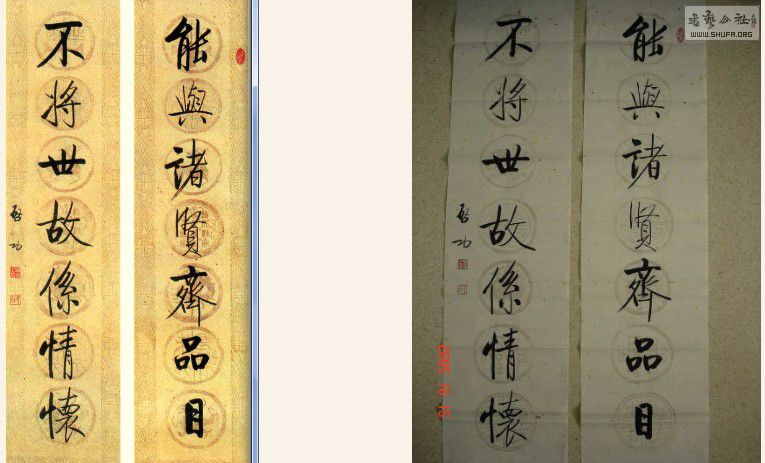 能與諸賢齊品目
不將世故係情懷
啟功
能與諸賢齊品目
不將世故係情懷
啟功
書藝公社
WWW.SHUFA.ORG